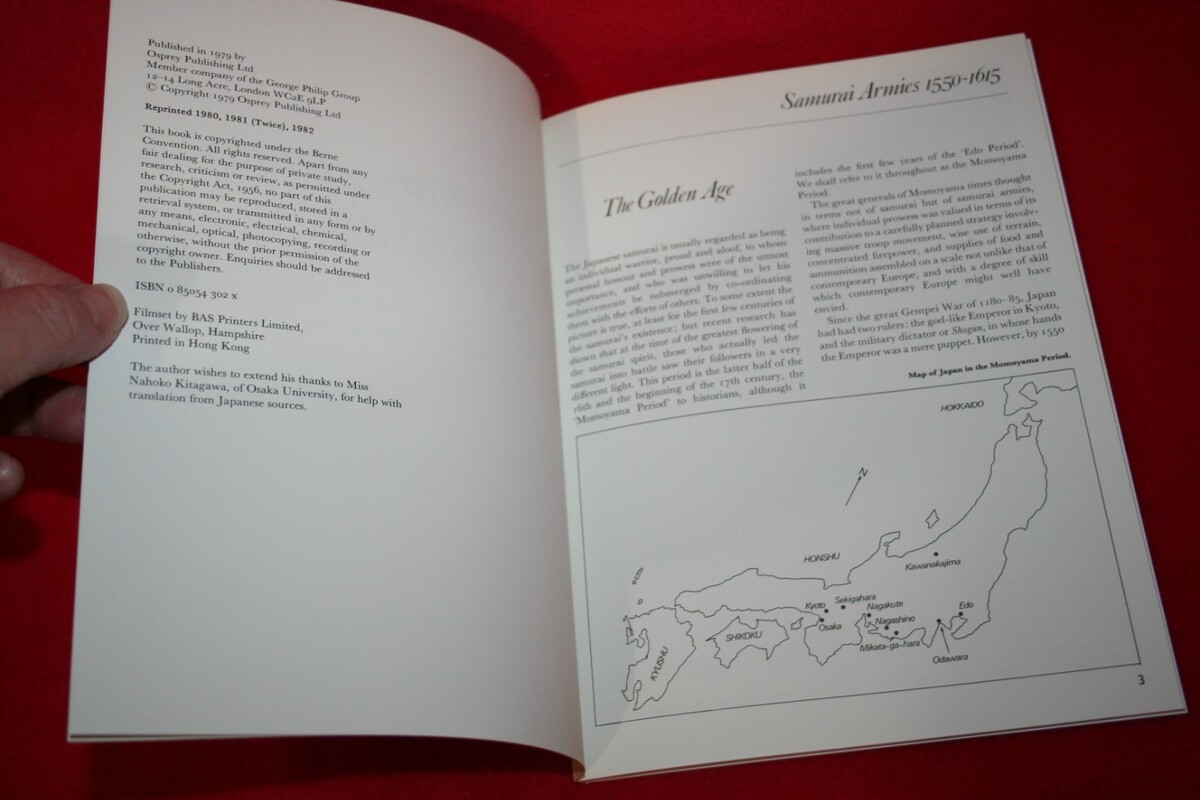 Published in 1979 by
Osprey Publishing Ltd
Member company of the George Philip Group
12–14 Long Acre, London WC2E 9LP
© Copyright 1979 Osprey Publishing Ltd
Reprinted 1980, 1981 (Twice), 1982
This book is copyrighted under the Berne
Convention. All rights reserved. Apart from any
fair dealing for the purpose of private study,
research, criticism or review, as permitted under
the Copyright Act, 1956, no part of this
publication may be reproduced, stored in a
retrieval system, or transmitted in any form or by
any means, electronic, electrical, chemical,
mechanical, optical, photocopying, recording or
otherwise, without the prior permission of the
copyright owner. Enquiries should be addressed
to the Publishers.
ISBN 0 85054 302 x
Filmset by BAS Printers Limited,
Over Wallop, Hampshire
Printed in Hong Kong
The author wishes to extend his thanks to Miss
Nahoko Kitagawa, of Osaka University, for help with
translation from Japanese sources.
Samurai Armies 1550-1615
The Golden Age
The Japanese samurai is usually regarded as being
an individual warrior, proud and aloof, to whom
personal honour and prowess were of the utmost
importance, and who was unwilling to let his
achievements be submerged by co-ordinating
them with the efforts of others. To some extent the
picture is true, at least for the first few centuries of
the samurai's existence; but recent research has
shown that at the time of the greatest flowering of
the samurai spirit, those who actually led the
samurai into battle saw their followers in a very
different light. This period is the latter half of the
16th and the beginning of the 17th century, the
'Momoyama Period' to historians, although it
includes the first few years of the 'Edo Period'.
We shall refer to it throughout as the Momoyama
Period.
The great generals of Momoyama times thought
in terms not of samurai but of samurai armies,
where individual prowess was valued in terms of its
contribution to a carefully planned strategy involv-
ing massive troop movement, wise use of terrain,
concentrated firepower, and supplies of food and
ammunition assembled on a scale not unlike that of
contemporary Europe, and with a degree of skill
which contemporary Europe might well have
envied.
Since the great Gempei War of 1180–85, Japan
had had two rulers: the god-like Emperor in Kyoto,
and the military dictator or Shogun, in whose hands
the Emperor was a mere puppet. However, by 1550
Map of Japan in the Momoyama Period.
HOKKAIDO
N
HONSHU
Kawanakajima
Kyoto
Sekigahara
Nagakute
Edo
Osaka
Nagashino
SHIKOKU
Mikata-ga-hara
KYUSHU
Odawara
3